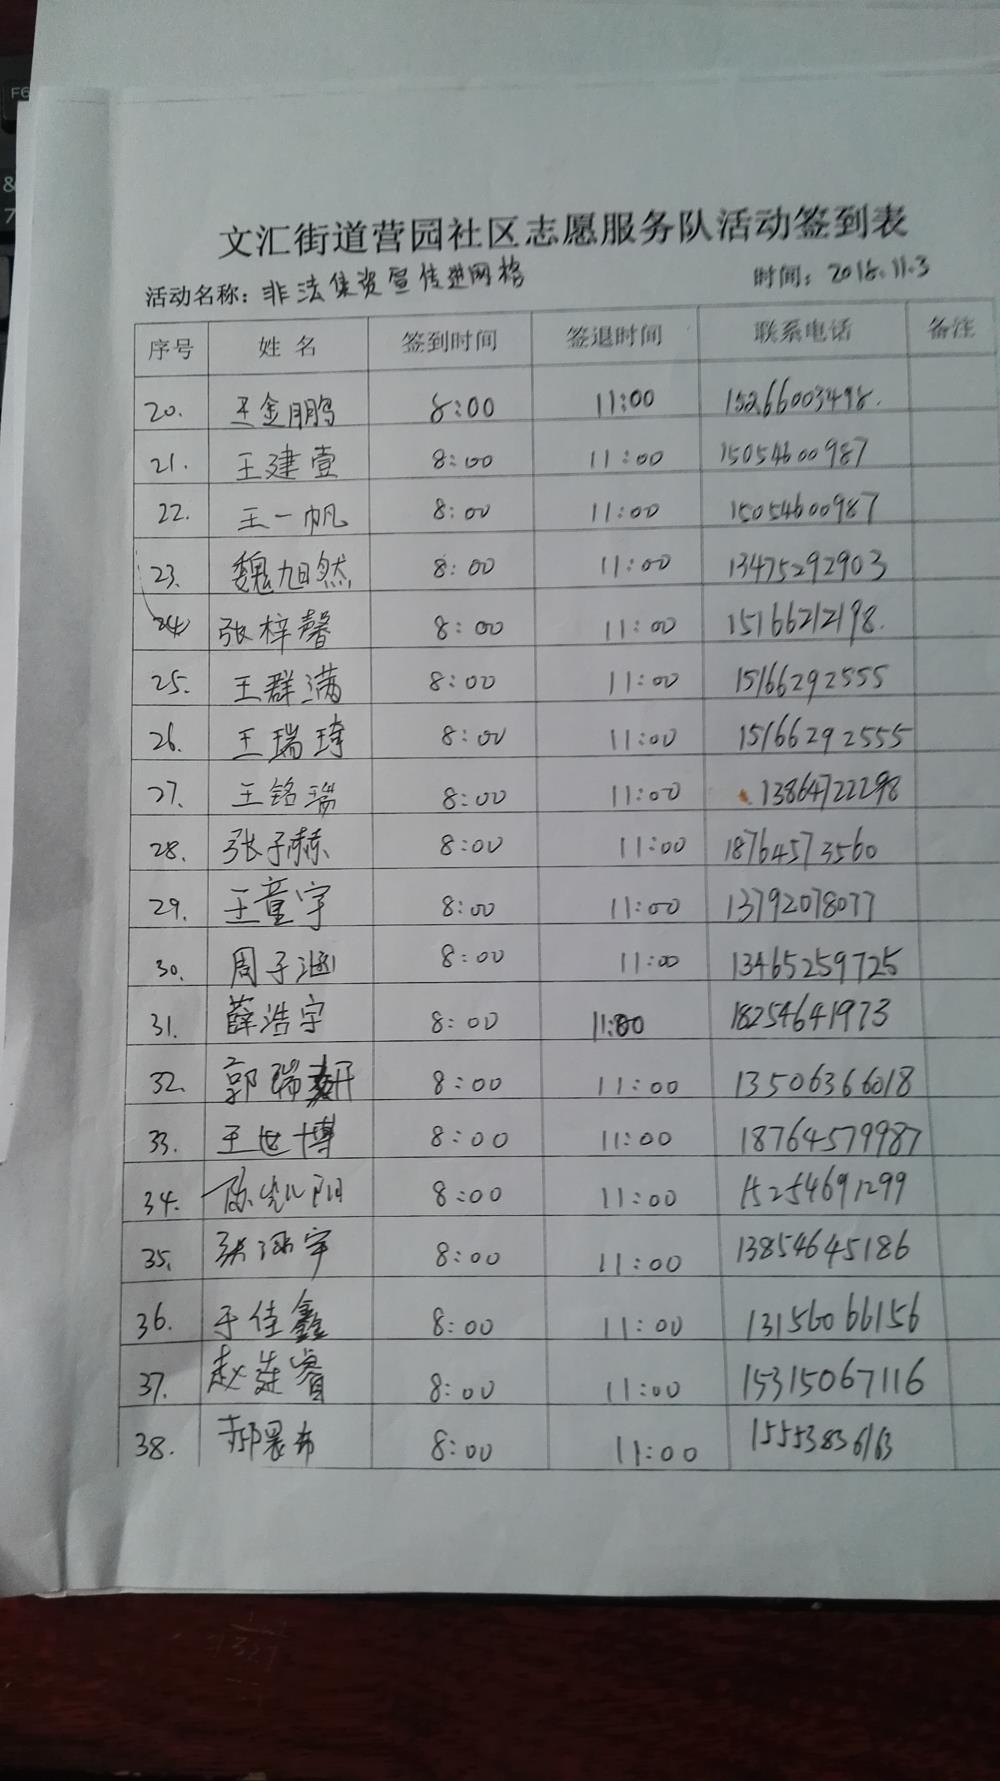 文汇街道营园社区志愿服务队活动签到表
活动名称：非法集资宣传进网格 时间：2018.11.3
序号 姓名 签到时间 签退时间 联系电话 备注
20. 王金鹏 8:00 11:00 15266003498.
21. 王建壹 8:00 11:00 15054600987
22. 王一帆 8:00 11:00 15054600987
23. 魏旭然 8:00 11:00 13475292903
24 张梓馨 8:00 11:00 15166212198.
25. 王群满 8:00 11:00 15166292555
26. 王瑞琦 8:00 11:00 15166292555
27. 王铭瑞 8:00 11:00 13864722298
28. 张子赫 8:00 11:00 18764573560
29. 王童宇 8:00 11:00 13792078077
30. 周子涵 8:00 11:00 13465259725
31. 薛浩宇 8:00 11:00 18254641973
32. 郭瑞妍 8:00 11:00 13506366018
33. 王世博 8:00 11:00 18764579987
34. 阳 8:00 11:00 15254691299
35. 张涵宇 8:00 11:00 13854645186
36. 于佳鑫 8:00 11:00 13156066156
37. 赵莛睿 8:00 11:00 15315067116
38. 8:00 11:00 15553836163
F6
&
7